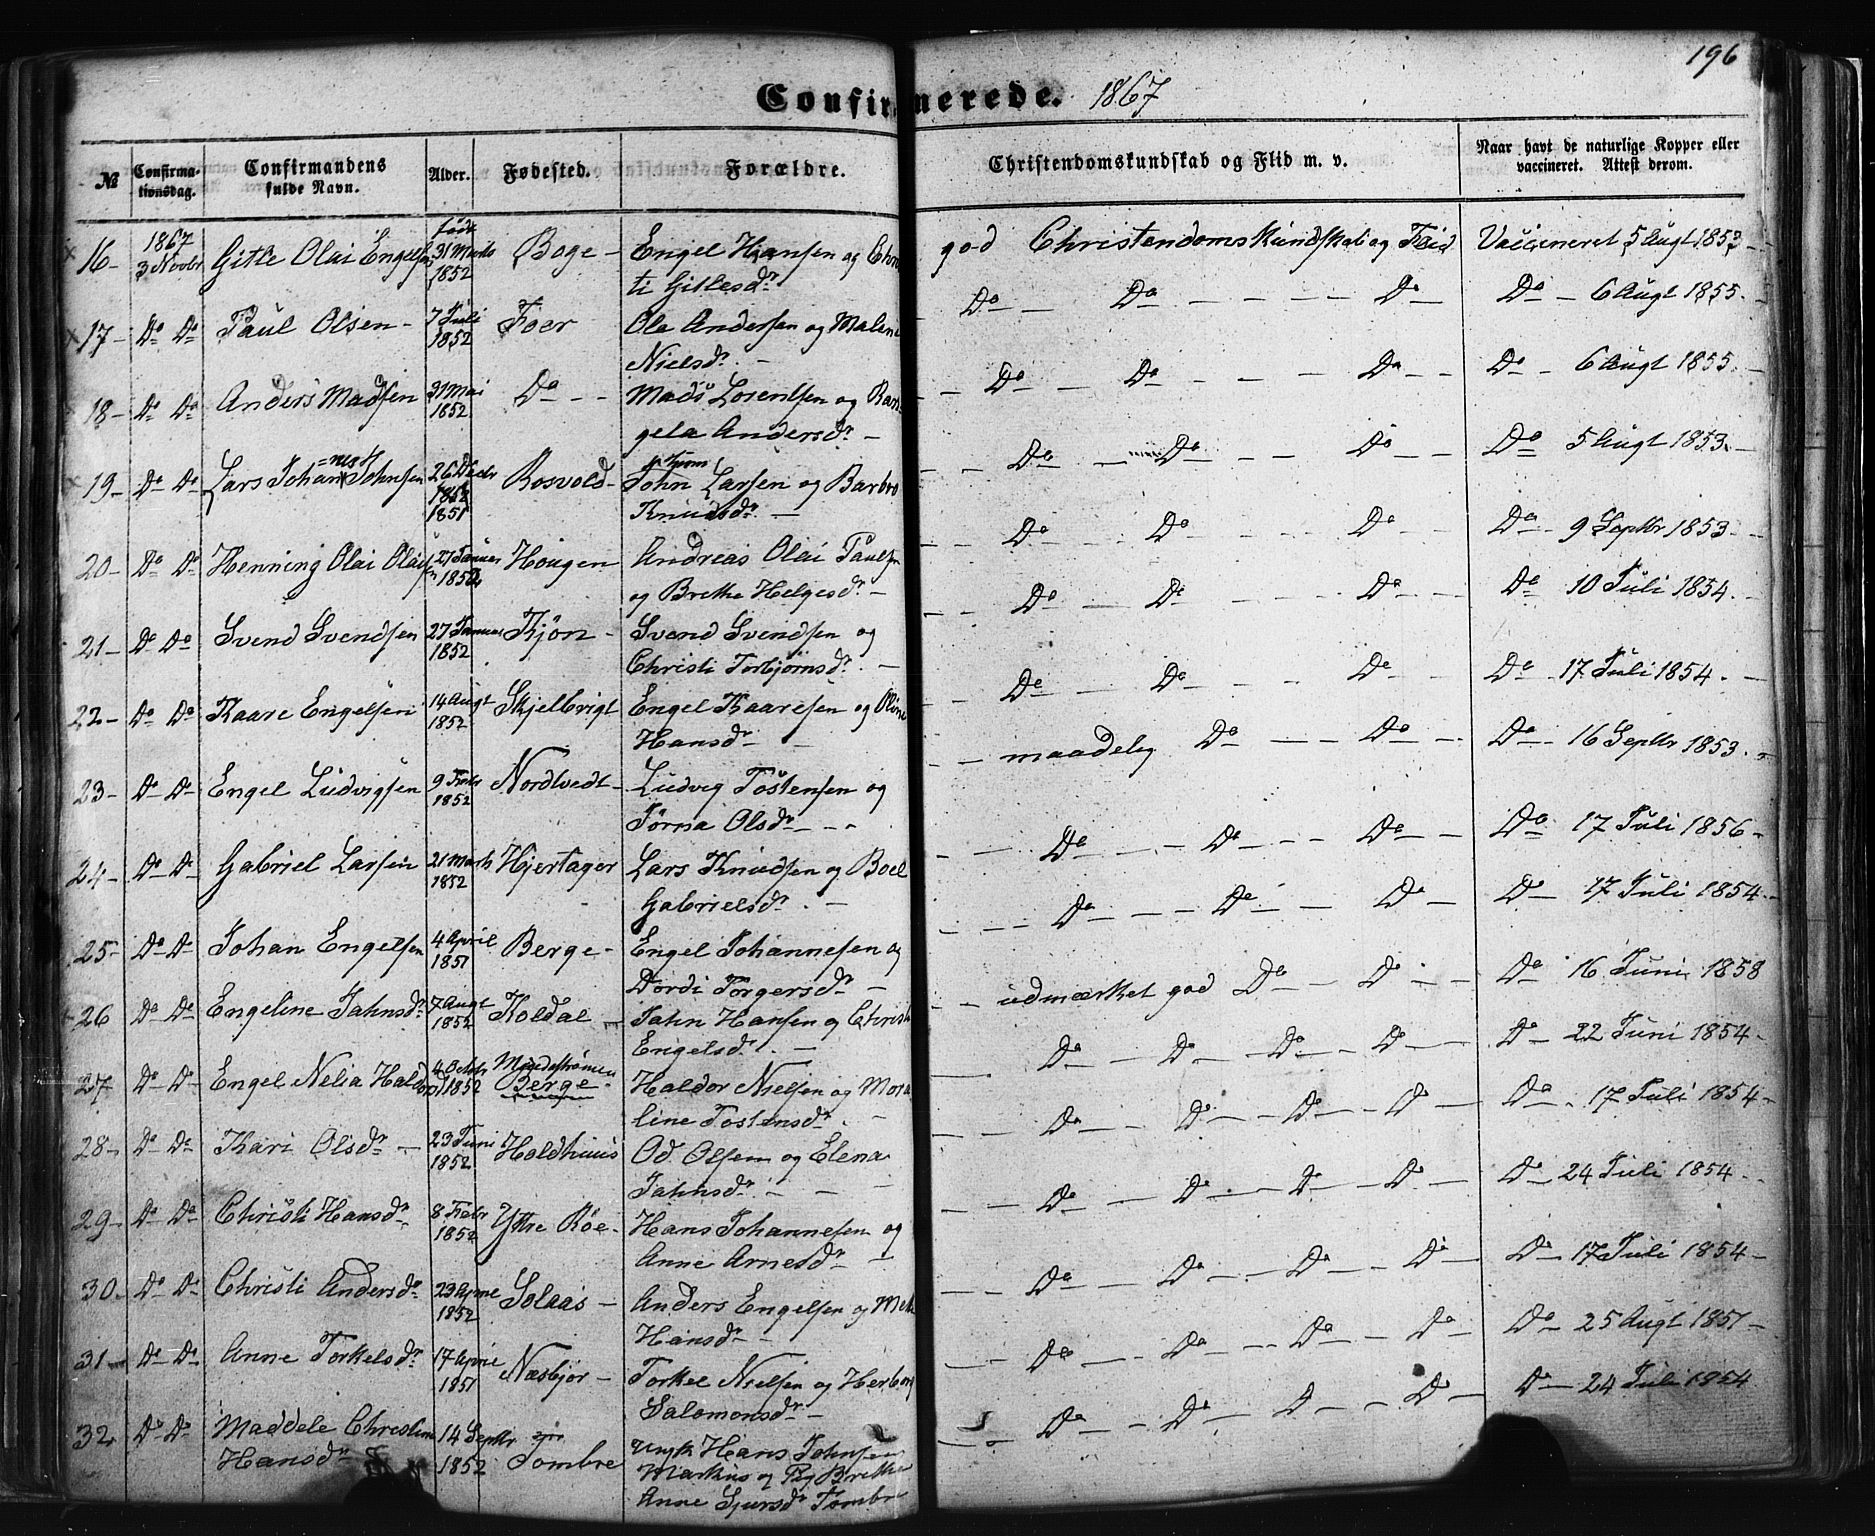 196
Confirmerede. 1867
№ Confirma-tionsdag. Confirmandens fulde Navn. Alder. Fødested. Forældre. Christendomskundskab og Flid m. v. Naar havt de naturlige Kopper eller vaccineret. Attest derom.
født
16- 1867 3 Novbr Gitle Olai Engelsen 31 Marts 1852 Boge - Engel Hansen og Chris- god Christendomskundskab og Flid Vaccineret 5 Augt 1853 -
ti Gitlesdr
17- Do Do Paul Olsen - 7 Juli 1852 Foer Ole Andersen og Malene Do Do - - - - Do - Do - 6 Augt 1855. -
Nielsdr. -
18- Do Do Anders Madsen 31 Mai 1852 Do - - Mads Lorentsen og Ran- Do - Do - - - Do - - Do - 6 Augt 1855. -
gela Andersdr. -
19- Do Do Lars Johannes Johnsen 26 Decbr 1851 Rosvold - John Larsen og Barbro Do - Do - Do Do 5 Augt 1853. -
Knudsdr. -
20- Do Do Henning Olai Olaisen 27 Januar 1852 Hougen Andreas Olai Paulsen Do Do - - - Do - Do - 9 Septbr 1853 -
og Brethe Helgesdr. -
21- Do Do Svend Svendsen 27 Januar 1852 Kjøn - Svend Svendsen og Do - Do - - - Do - Do 10 Juli 1854. -
Christi Torbjørnsdr. -
22- Do Do Kaare Engelsen 14 Augt 1852 Skjelbvigt Engel Kaaresen og Oline Do - - Do - - - Do - Do - 17 Juli 1854. -
Hansdr -
23- Do Do Engel Ludvigsen 9 Febr 1852 Nordtvedt - Ludvig Tostensen og - - maadelig Do - - Do - - Do - 16 Septbr 1853. -
Jørna Olsdr - - -
24- Do Do Gabriel Larsen 21 Marts 1852 Hjertager Lars Knudsen og Boel - - Do - - Do - - Do - - Do 17 Juli 1856 -
Gabrielsdr. -
25- Do Do Johan Engelsen 4 April 1851 Berge - Engel Johannesen og - - Do - - - Do - - Do - Do - 17 Juli 1854 -
Dordi Torgersdr -
26 Do Do Engeline Jahnsdr 7 Augt 1852 Koldal - Jahn Hansen og Christi - udmærket god Do - - Do - - Do - 16 Juni 1858
Engelsdr. -
27- Do Do Engel Nelia Haldorsdr 4 Octbr 1852 Berge - Haldor Nielsen og Mor- - - Do - Do - Do - - Do - Do - 22 Juni 1854 -
line Tostensdr. -
28- Do Do Kari Olsdr - 23 Juni 1852 Holdhuus Od Olsen og Elena - - Do - Do - Do - Do - Do - 17 Juli 1854 -
Jahnsdr - -
29- Do Do Christi Hansdr 8 Febr 1852 Ytre Røe - Hans Johannesen og - - Do - Do - - Do - Do - Do - 24 Juli 1854 -
Anne Arnesdr -
30- Do Do Christi Andersdr 23 April 1852 Solaas - Anders Engelsen og - - Do - - Do - - Do - - Do - Do - 17 Juli 1854 -
Hansdr -
31- Do Do Anne Torkelsdr 17 April 1851 Næsbjør - Torkel Nielsen og Herborg - - Do - - Do - - Do - Do - Do - 25 Augt 1851 -
Salomonsdr -
32 Do Do Maddele Christine 14 Septbr Ungk Hans Johnsen - - Do - Do - - Do - Do - Do - 24 Juli 1854
Hansdr 1852 Tombre Markhus og Pig Brethe
Anne Sjursdr Tombre